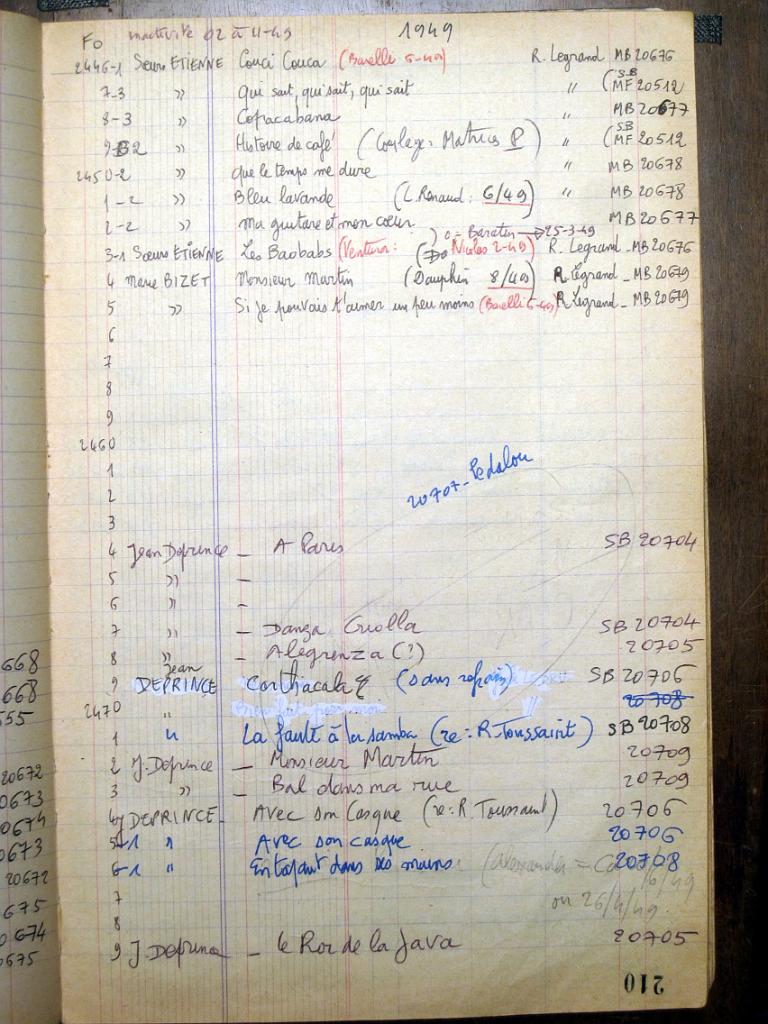 1949
Fo inactivité 02 à 11-49
2446-1 Sœurs ETIENNE Couci Couca (Barelli 5-49) R. Legrand MB 20676
7-3 " Qui sait, qui sait, qui sait " (SB MF 20512
8-3 " Copacabana MB 20677
9-2 " Histoire de café ( Mathis P) " (SB MF 20512
2450-2 " que le temps me dure " MB 20678
1-2 " Bleu lavande (L. Renaud: 6/49) " MB 20678
2-2 " ma guitare et mon cœur MB 20677
) o = Baratin → 25-3-49
3-1 Sœurs ETIENNE Les Baobabs (Ventura: Nicolas 2-49) R. Legrand - MB 20676
4 Marie BIZET Monsieur Martin (Dauphin 8/49) R Legrand - MB 20679
5 " Si je pouvais t'aimer un peu moins (Barelli 5-49) R Legrand - MB 20679
6
7
8
9
2460
1
20707 - Pédalou
2
3
4 Jean Deprince - A Paris SB 20704
5 " -
6 " -
7 " - Danza Criolla SB 20704
8 " - Alegrenza (?) 20705
9 Jean DEPRINCE (sans refrain) SB 20706
20708
2470 "
1 " La faute à la samba (re: R. Toussaint) SB 20708
2 J. Deprince - Monsieur Martin 20709
3 " - Bal dans ma rue 20709
4 J DEPRINCE - Avec son Casque (re: R. Toussaint) 20706
5-1 " Avec son casque 20706
6-1 " En tapant dans des mains. (Alexander = 20708
6/49
7
8 ou 26/4/49
9 J Deprince - Le Roi de la Java 20705
210
668
668
555
20672
0673
0674
0673
20672
675
0674
0675